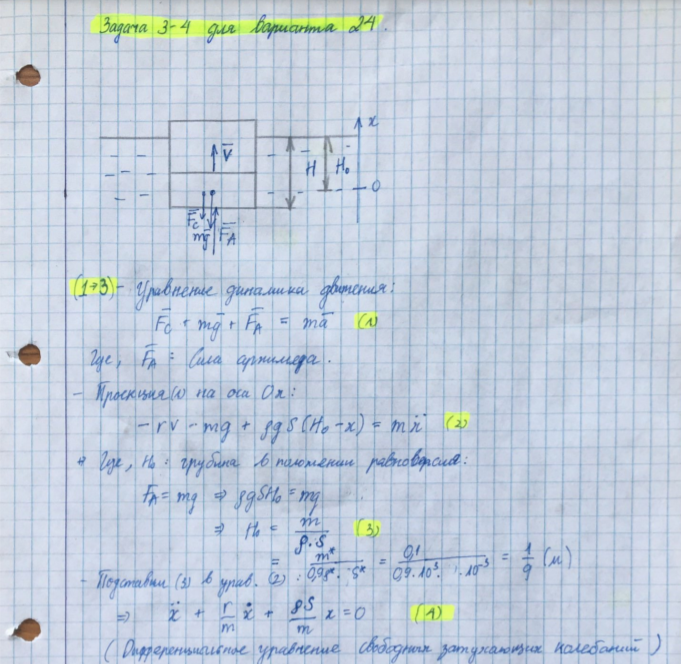 Задача 3-4 для варианта 24.
x
V̄
H
H₀
0
F̄c
mḡ
F̄A
(1→3) - Уравнение динамики движения:
F̄c + mḡ + F̄A = mā (1)
Где, F̄A = Сила архимеда.
- Проекция (1) на оси Ox:
- rv - mg + ρgS(H₀-x) = mẍ (2)
Где, H₀: глубина в положении равновесия:
FA = mg ⇒ ρgSH₀ = mg
⇒ H₀ = m/ρ.S (3)
= m*/0,9ρ*. S* = 0,1/0,9.10³. 1.10⁻³ = 1/9 (м)
- Подставим (3) в урав. (2):
⇒ ẍ + r/m ẋ + ρS/m x = 0 (4)
(Дифференциальное уравнение свободных затухающих колебаний)